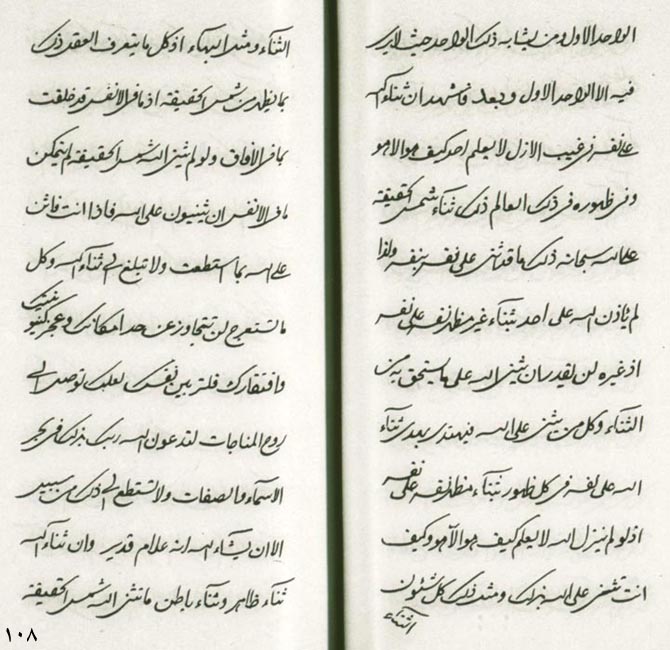 الواحد الاول ومن يشابه ذلك الواحد حيث لايرى
فيه الا الواحد الاول وبعد فاشهد ان ثناء الله
على نفسه فى غيب الازل لا يعلم احد كيف هو الا هو
وفى ظهوره فى ذلك العالم ذلك ثناء شمس الحقيقة
على الله سبحانه ذلك ما قد اثنى على نفسه بنفسه ولذا
لم ياذن الله على احد بثناء غير مظهر نفسه على نفسه
اذ غيره لن يقدر ان يثنى الله على ما يستحق به من
الثناء وكل من يثنى على الله فيهتدى بهدى ثناء
الله على نفسه فى كل ظهور بثناء مظهر نفسه على نفسه
اذ لو لم ينزل الله لا يعلم كيف هو الا هو وكيف
انت تثنى على الله بذلك ومثل ذلك كل شئون
الثناء
الثناء ومثل البهاء اذ كل ما يتعرف العقل ذلك
بما يظهر من شمس الحقيقة اذ ما فى الانفس قد خلقت
بما فى الافاق ولو لم يثنى الله شمس الحقيقة لم يتمكن
ما فى الانفس ان يثنيون على الله فاذا انت فاثن
على الله بما استطعت ولا تبلغ الى ثناء الله وكل
ما تستعرج لن تتجاوز عن حد امكانك وعجز كينونيتك
وافتقارك فلتربين نفسك لعلك توصل الى
روح المناجات لتدعون الله ربك بذلك فى بحر
الاسماء والصفات ولا تستطع الى ذلك من سبيل
الا ان يشاء الله انه علام قدير وان ثناء الله
ثناء ظاهر وثناء باطن ما تثنى الله شمس الحقيقة
١٠٨